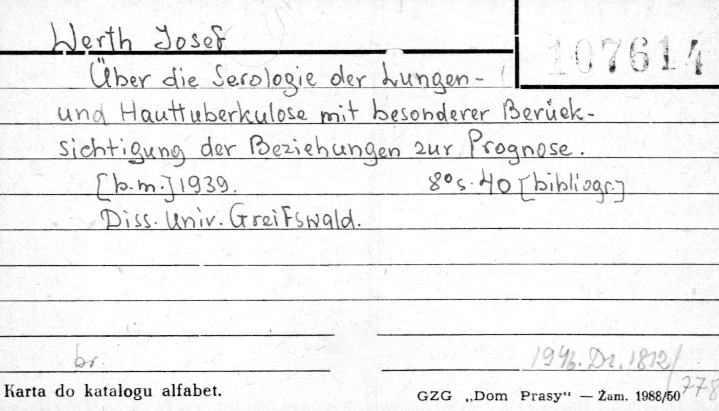 Werth Josef
107614
Über die Serologie der Lungen-
und Hauttuberkulose mit besonderer Berück-
sichtigung der Beziehungen zur Prognose.
[b.m.] 1939. 8° s. 40 [bibliogr.]
Diss. Univ. Greifswald.
br. 1946. Dr. 1812/
778
Karta do katalogu alfabet. GZG „Dom Prasy" — Żam. 1988/50